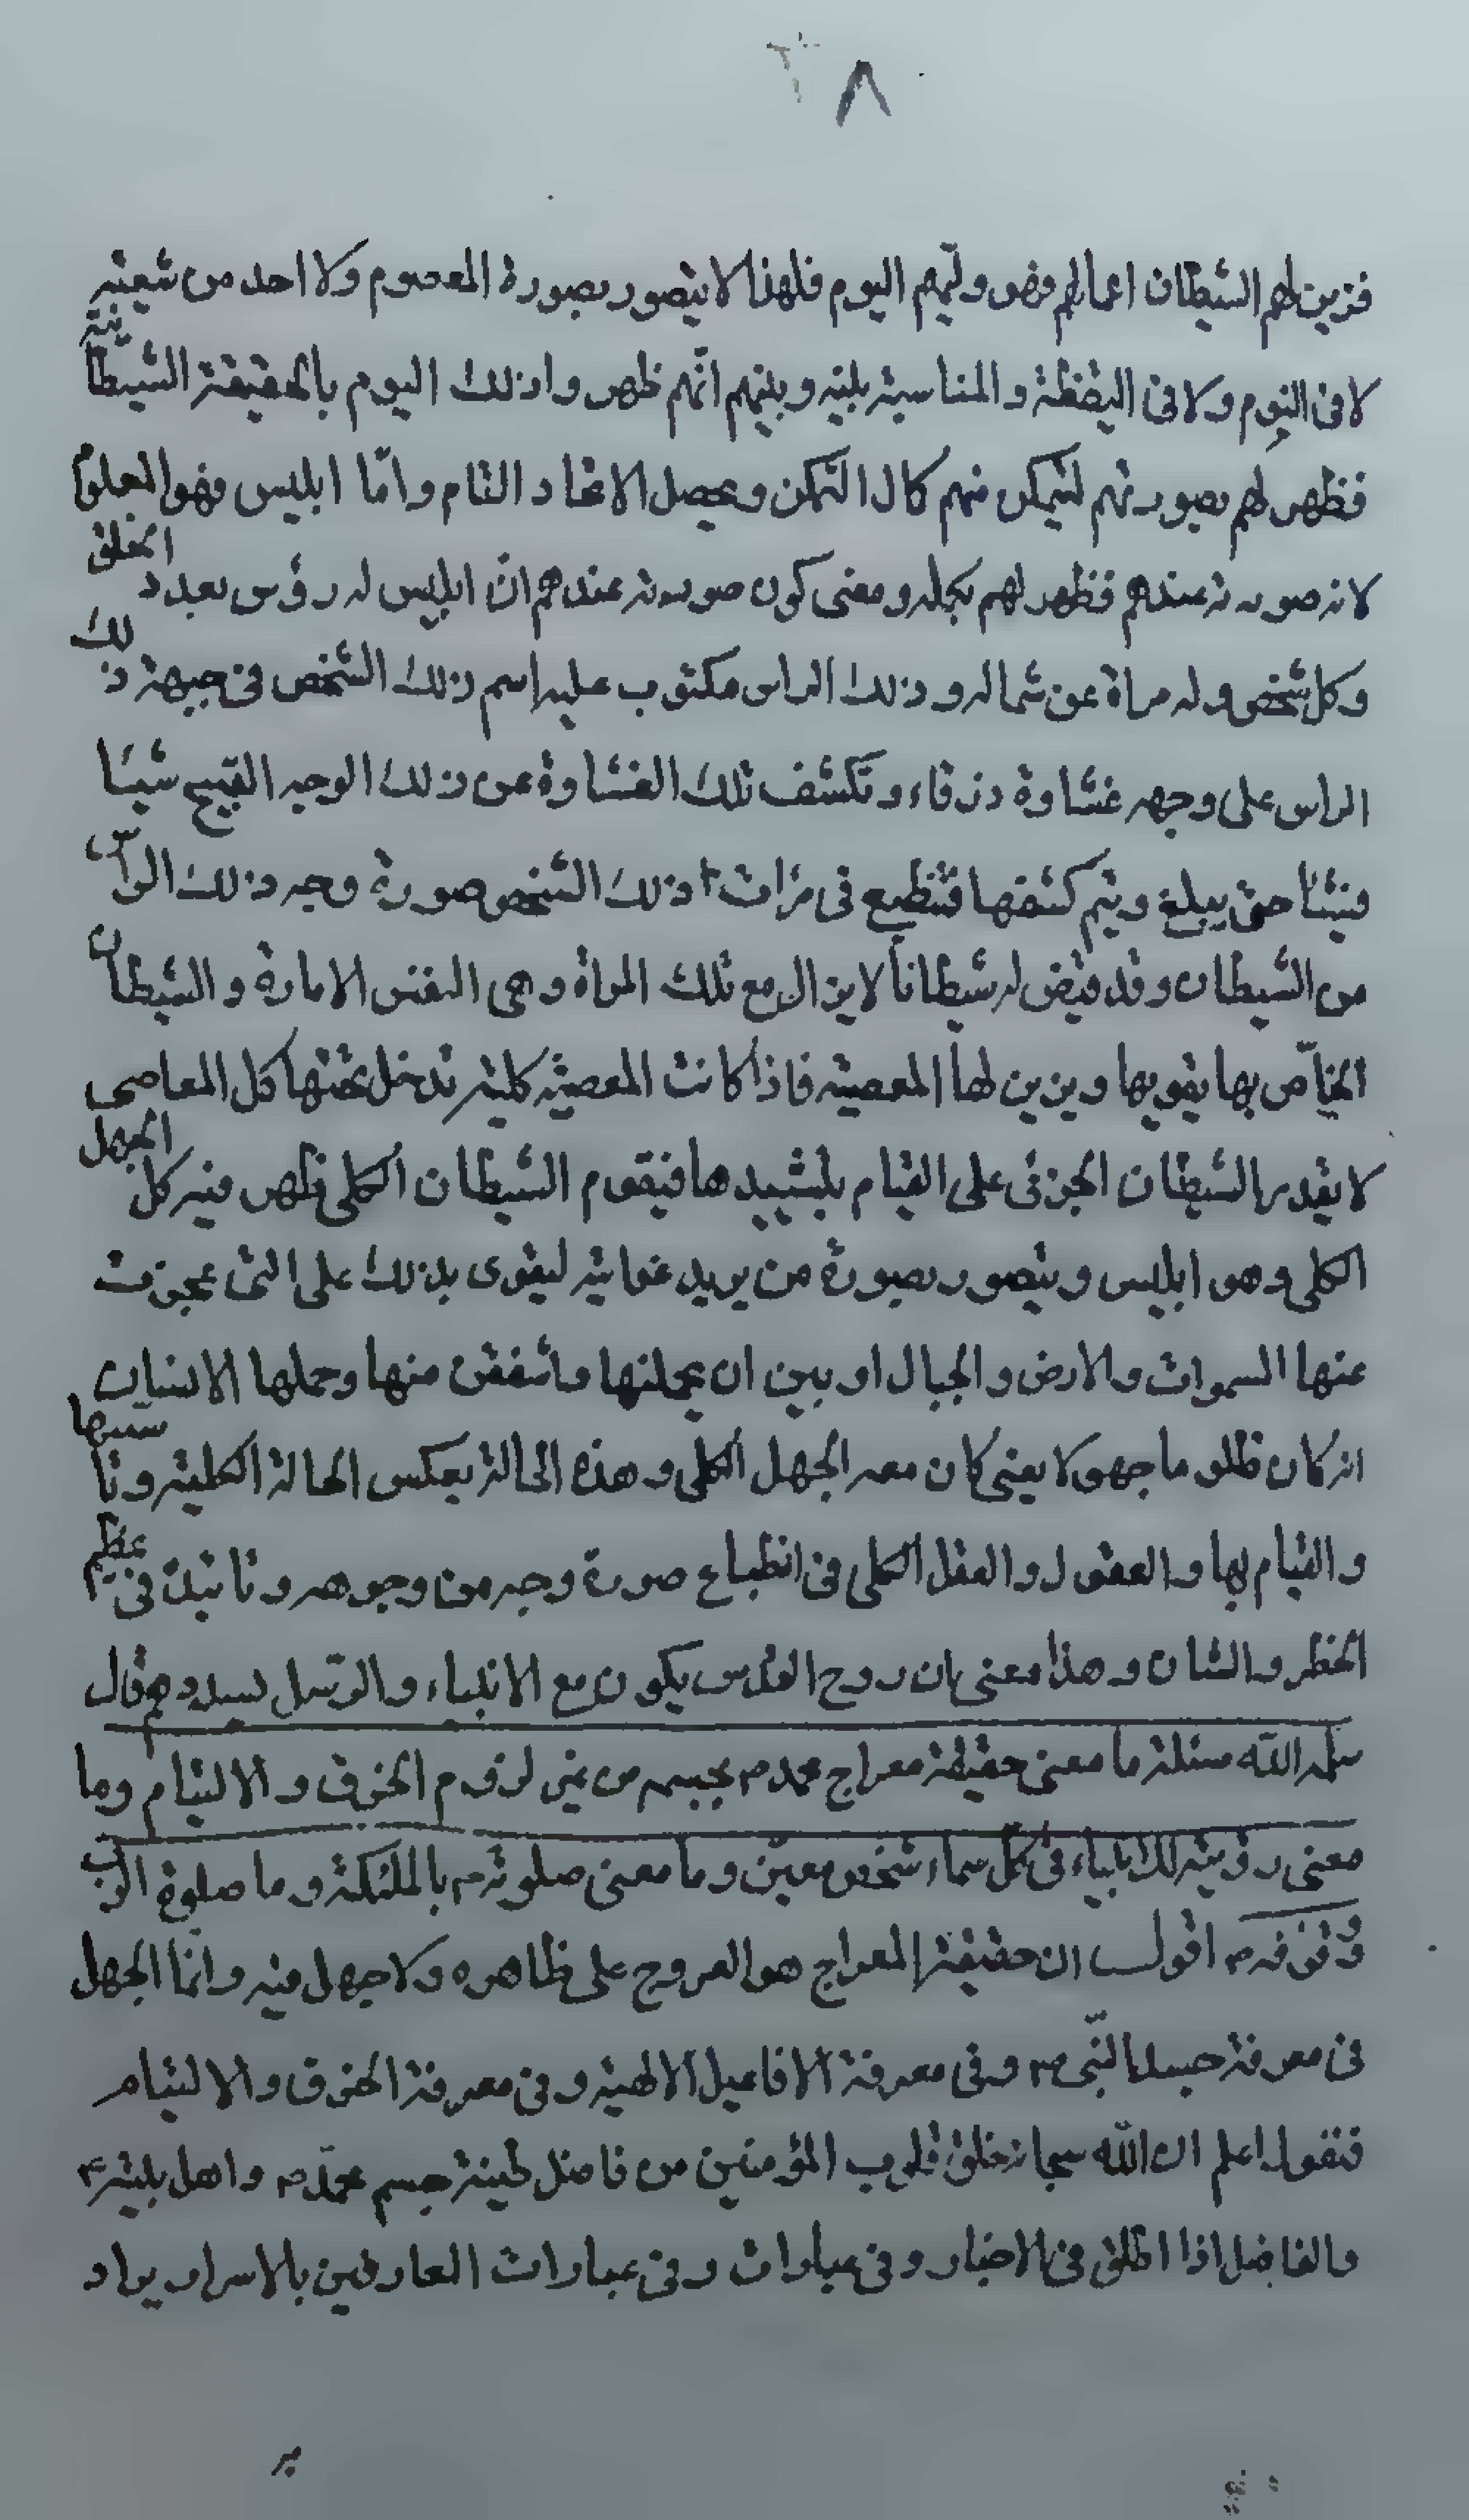 ٨
فزين لهم الشيطان اعمالهم فهو وليهم اليوم فلهذا لا يتصور بصورة المعصوم ولا احد من شيعته
لا فى النوم ولا فى اليقظة والمناسبة بينه وبينهم انهم ظهروا ذلك اليوم بالحقيقة الشيطانية
فظهر لهم بصورتهم ليتمكن منهم كمال التمكن ويحصل الاتحاد التام وامّا ابليس فهو المعلوم
لانه صورته عندهم فظهر لهم بكله ومعنى كون صورته عندهم انّ ابليس له رؤس بعدد الخلق
وكل شخص وله مراة عن شماله وذلك الراس مكتوب عليه اسم ذلك الشخص فى جبهة ذلك
الراس على وجهه غشاوة زرقاء وتكشف تلك الغشاوة عن ذلك الوجه القبيح شيئا
فشيئا حتى يبلغ ويتم كشفها فتنطبع فى مرات ذلك الشخص صورة وجه ذلك الراس
من الشيطان وقد قيض له شيطانا لا يزال مع تلك المراة وهى النفس الامارة والشيطان
الخاصّ بها يقويها ويزين لها المعصية فاذا كانت المعصية كلية تدخل تحتها كل المعاصى
لا يقدر الشيطان الجزئى على القيام بتشييدها فيقوم الشيطان الكلى ظهر فيه كل الجهل
الكلى وهو ابليس ويتصور بصورة من يريد غوايته ليقوى بذلك على التى عجزت
عنها السموات والارض والجبال او بين ان يحملنها واشفقن منها وحملها الانسان
انه كان ظلوما جهولا يعنى كان معه الجهل الكلى وهذه الحالة بعكس الحالة الكلية وتاسيسها
والقيام بها والعقول والعقل الكلى فى انطباع صورة وجه من وجوهه وتابيده فى عظيم
الخطر والشان وهذا معنى ان روح القدس يكون مع الانبياء والرسل يسددهم قال
سلمه الله مسئلة ما معنى حقيقة معراج محمد ص بجسمه من غير لزوم الخرق والالتيام وما
معنى رؤيته للانبياء فى كل سماء شخص معين وما معنى صلوته ص بالملئكة وما صلوة الرب
ووقوفه ص اقول ان حقيقة المعراج هو العروج على ظاهره ولا جهل فيه وانّما الجهل
فى معرفة جسد النّبى ص وفى معرفة الافاعيل الالهية وفى معرفة الخرق والالتيام
فنقول اعلم ان الله سبحانه خلق قلوب المؤمنين من فاضل طينة جسم محمّد ص واهل بيته ع
والفاضل اذا اطلق فى الاخبار وفى عبارات وفى عبارات العارفين بالاسرار يراد